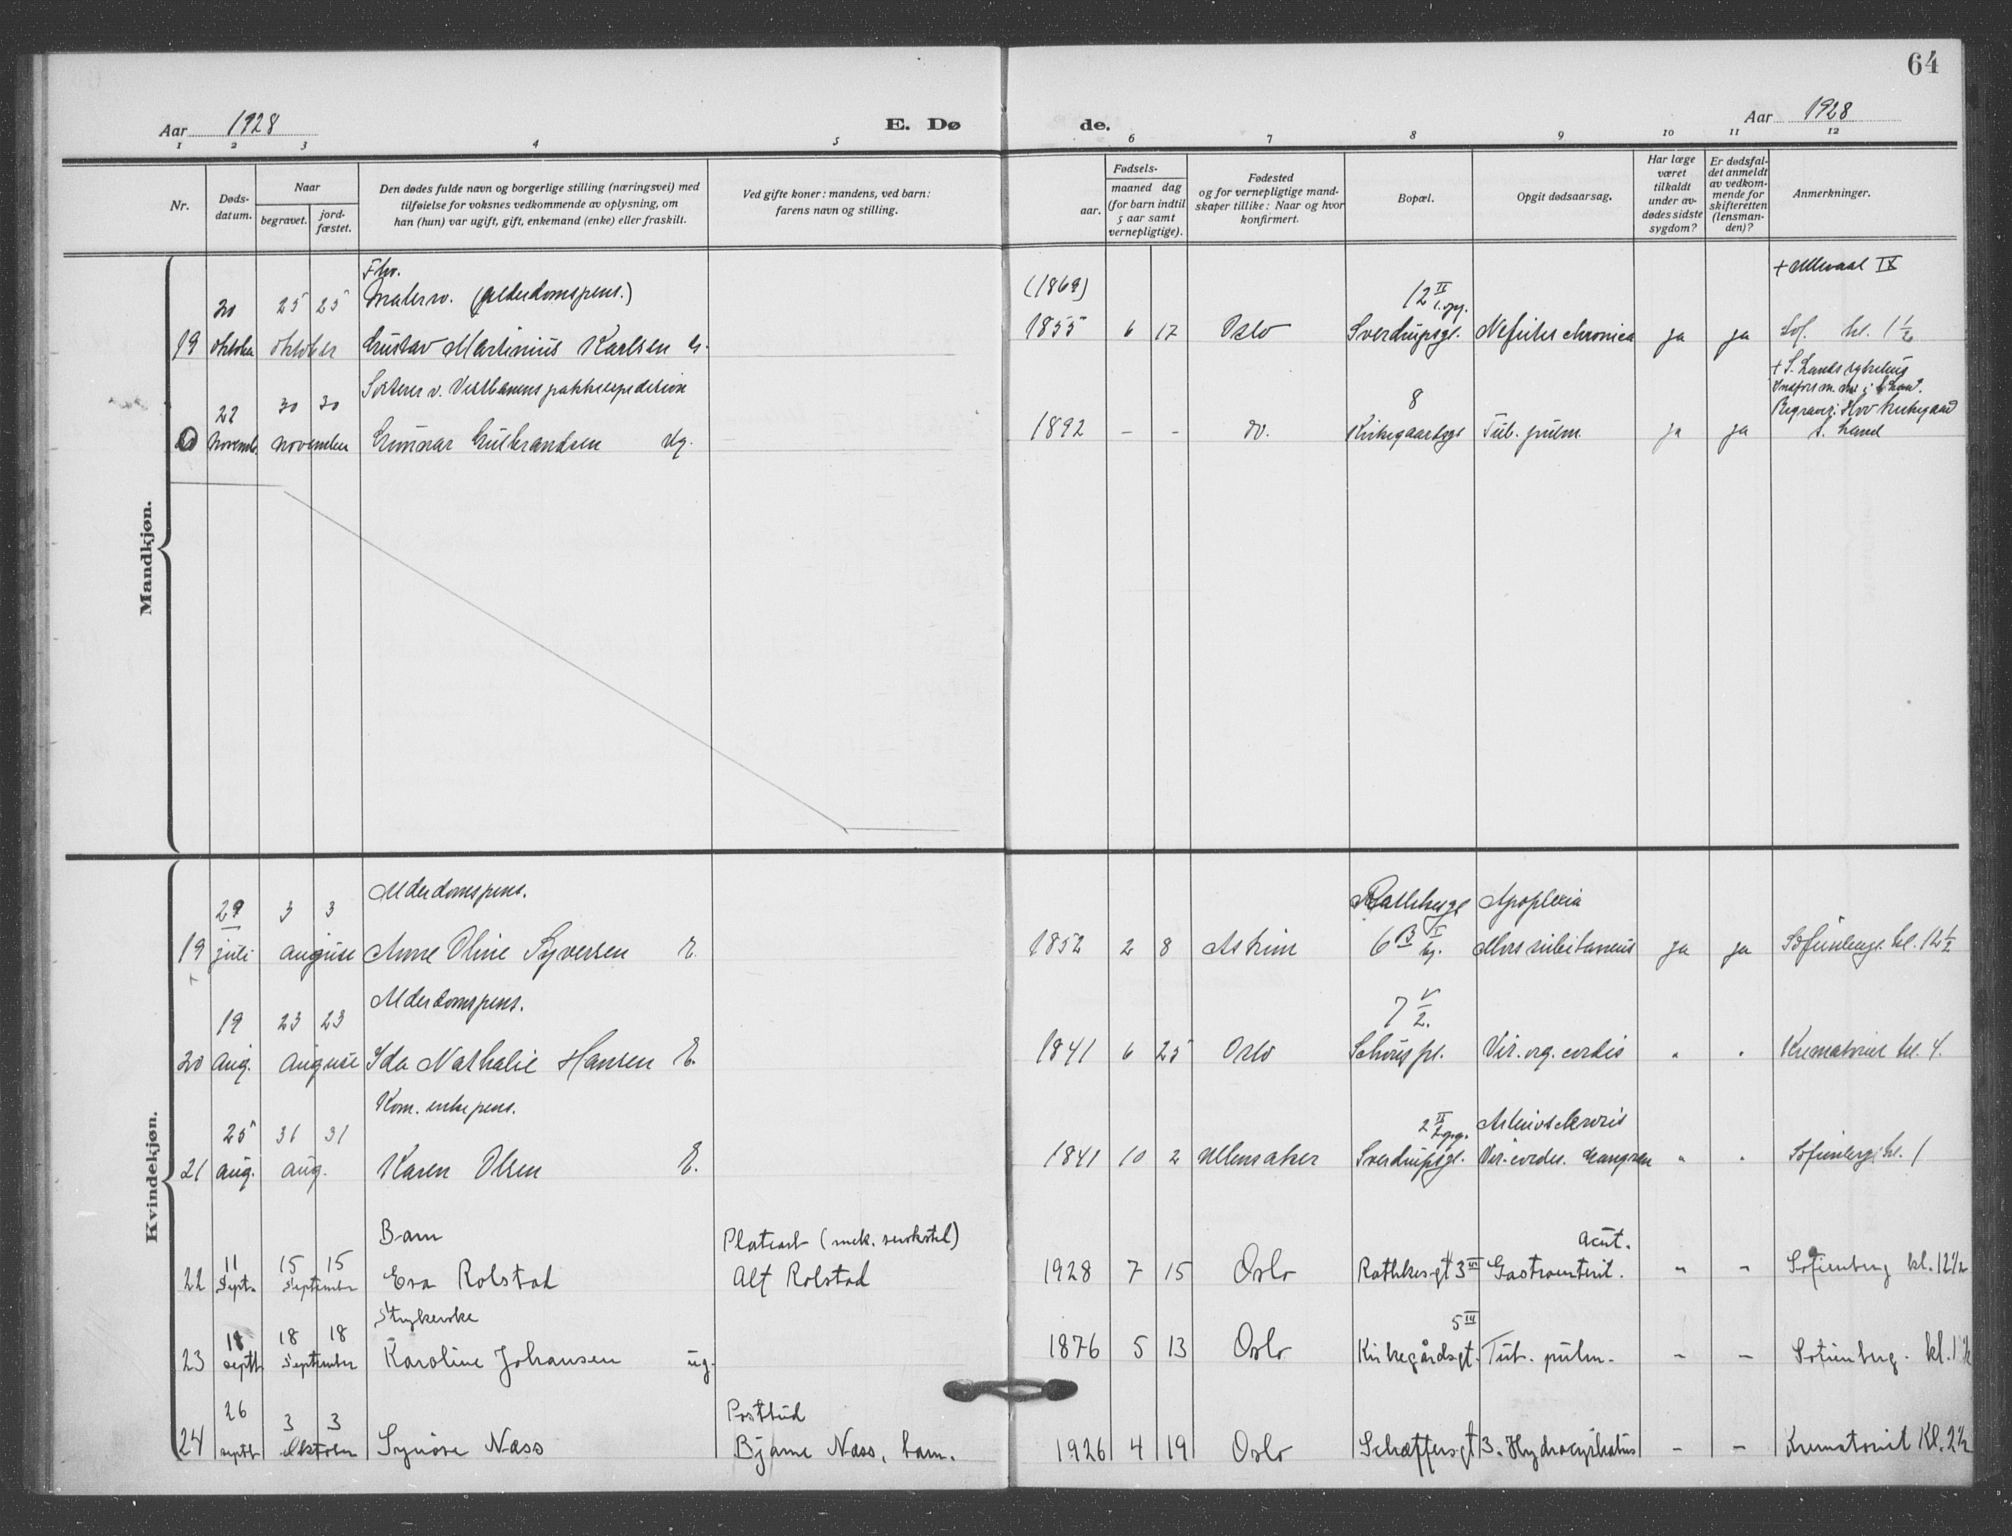 64
Aar 1928
E. Dø
de.
Aar 1928
1 2 3 4 5 6 7 8 9 10 11 12
Nr.
Døds-
datum.
Naar
begravet.
jord-
fæstet.
Den dødes fulde navn og borgerlige stilling (næringsvei) med
tilføielse for voksnes vedkommende av oplysning, om
han (hun) var ugift, gift, enkemand (enke) eller fraskilt.
Ved gifte koner: mandens, ved barn:
farens navn og stilling.
Fødsels-
aar.
maaned dag
(for barn indtil
5 aar samt
vernepligtige).
Fødested
og for vernepligtige mand-
skaper tillike: Naar og hvor
konfirmert.
Bopæl.
Opgit dødsaarsag.
Har læge
været
tilkaldt
under av-
dødes sidste
sygdom?
Er dødsfal-
det anmeldt
av vedkom-
mende for
skifteretten
(lensman-
den)?
Anmerkninger.
Mandkjøn.
Fhv. + Ullevaal IX
20 25 25 Malersv. (alderdomspens.) (1869) 12 II
19 oktober oktober Gustav Martinius Karlsen 1855 6 17 Oslo Sverdrupsgt. Nefritis chronica ja ja Sof. kl. 1 1/2
22 30 30 Sorterer v. Vestbanens pakkeexpedition 8
November november Gunnar Gulbrandsen ug. 1892 - - do. Kirkegaardsgt Tub. pulm. ja ja S. Land
Kvindekjøn.
29 3 3 Alderdomspens. Rathkesgt Apoplexia
19 juli august Anne Oline Syversen E. 1852 2 8 Askim 6 Mors subitaneus ja ja Sofienbergs kl. 12 1/2
19 23 23 Alderdomspens. 7 V/2.
20 aug. august Ida Nathalie Hansen E. 1841 6 25 Oslo Schous pl. Vit. org. cordis " " Krematoriet kl. 4.
25 31 31 Kom. enkepens. 2 II Arteriosclerosis
21 aug. aug. Karen Olsen E. 1841 10 2 Ullensaker Sverdrupsgt. Vit. cordis. Gangren " " Sofienberg kl. 1
11 15 15 Barn Platearb (mek. verksted) acut.
22 Sept. September Eva Rolstad Alf Rolstad 1928 7 15 Oslo Rathkesgt 3 III Gastroenterit. " - Sofienberg kl. 12 1/2
18 18 18 Strykerske 5 III
23 septbr september Karoline Johansen ug. 1876 5 13 Oslo Kirkegårdsgt. Tub. pulm. - - Sofienberg. kl. 1 1/2
26 3 3 Postbud
24 septbr Oktober Synøve Næss Bjarne Næss, barn. 1926 4 19 Oslo Schæffersgt 3. Hydrocephalus - - Krematoriet Kl. 2 1/2